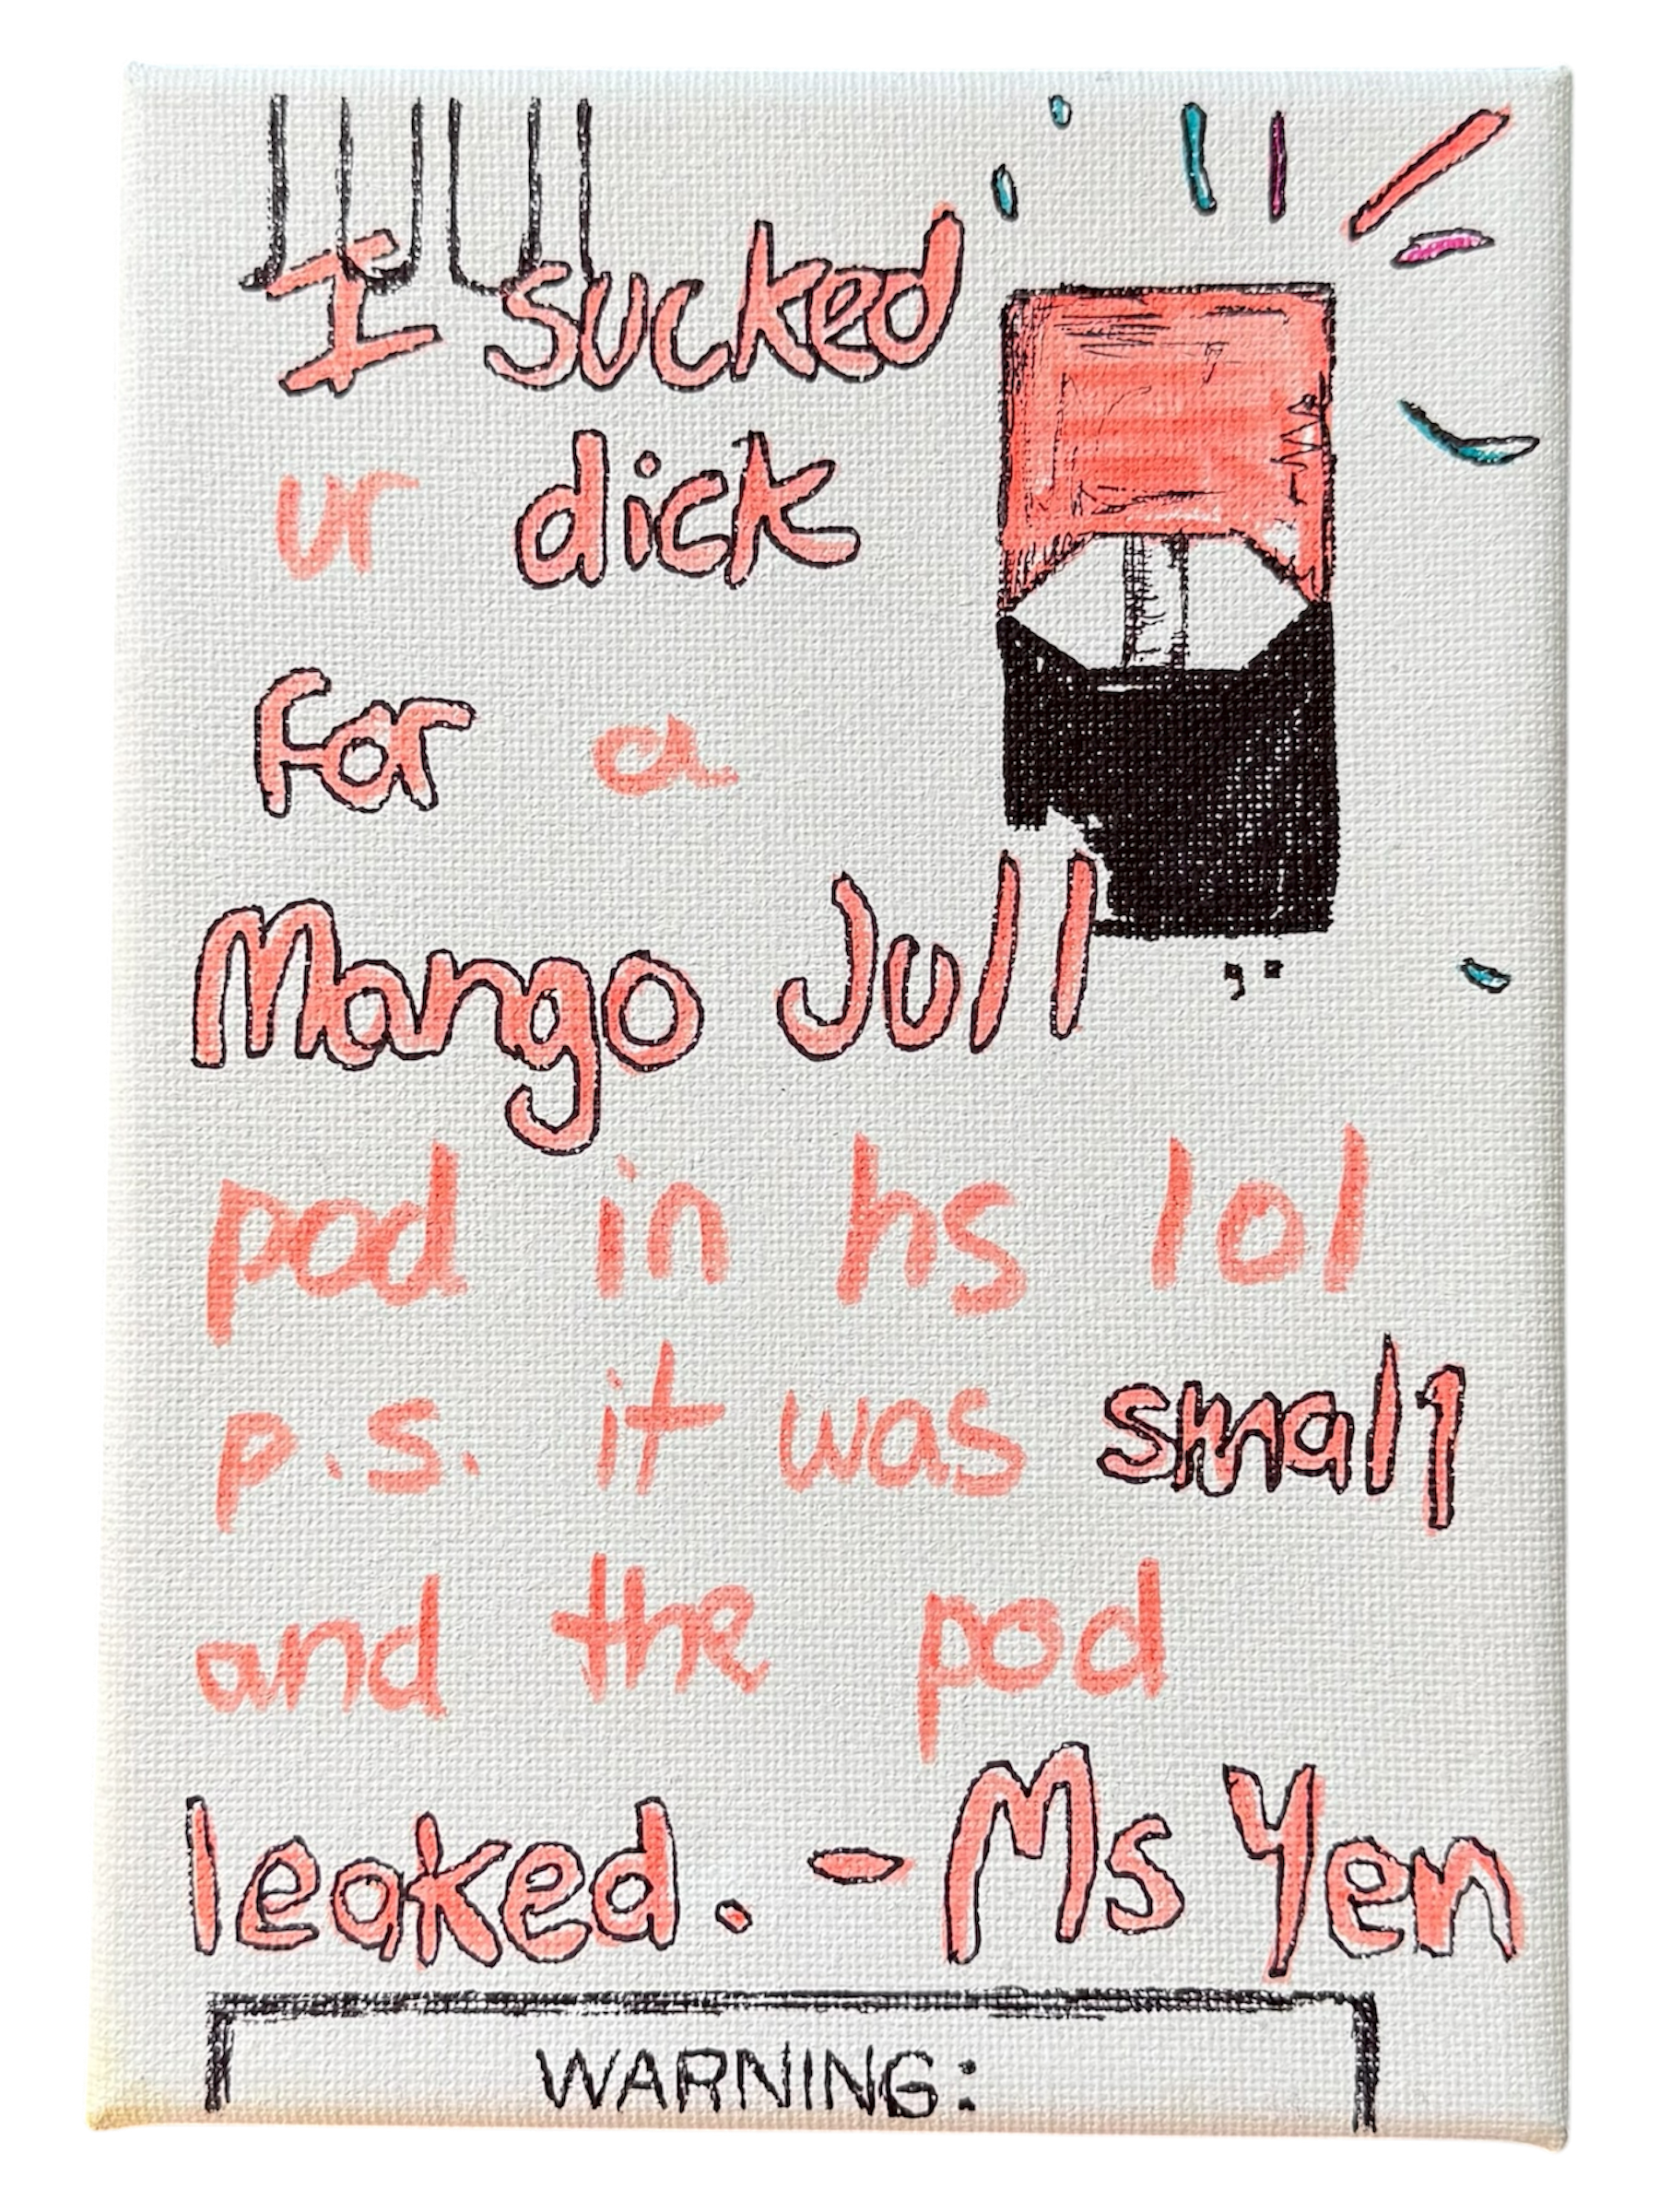 JUUL
I sucked
ur dick
for a
Mango Jull
pod in hs lol
p.s. it was small
and the pod
leaked. - Ms Yen
WARNING: